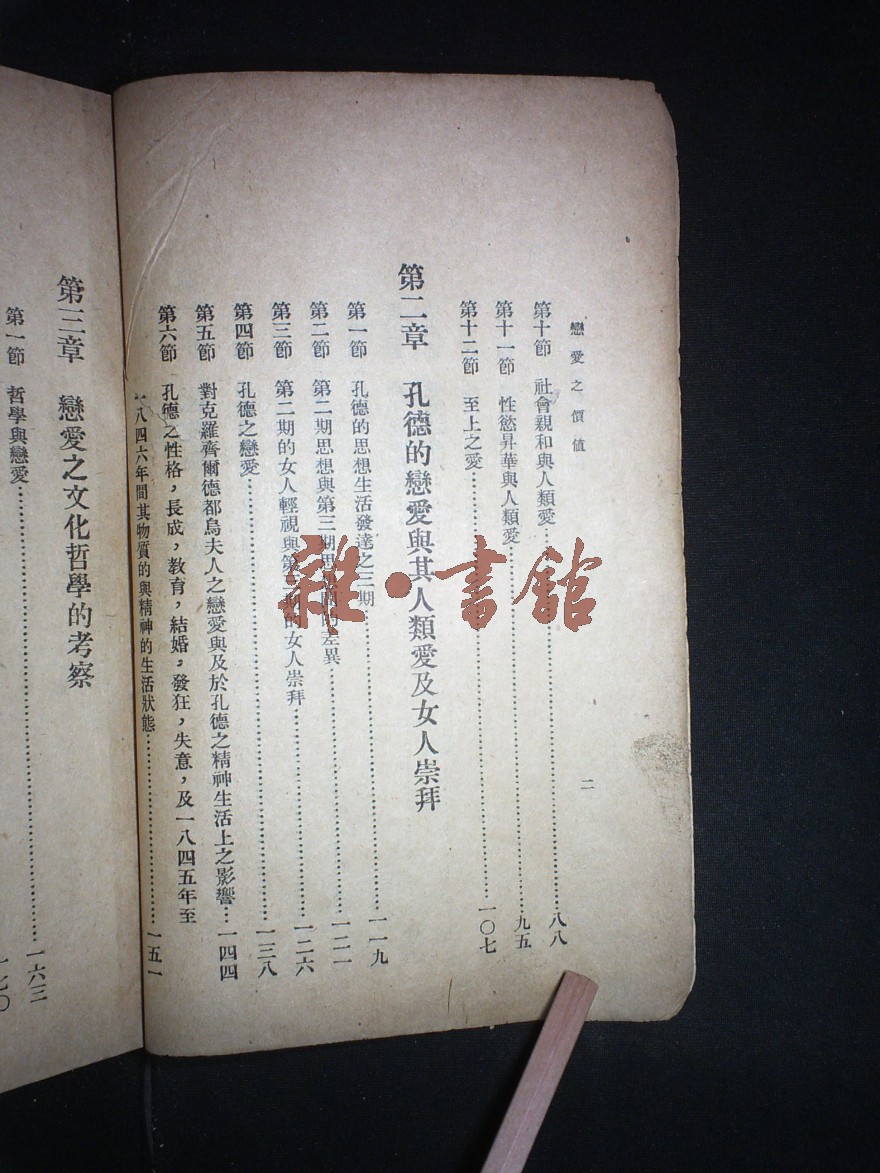 戀愛之價値
二
第十節　社會親和與人類愛……八八
第十一節　性慾昇華與人類愛……九五
第十二節　至上之愛……一〇七
第二章　孔德的戀愛與其人類愛及女人崇拜
第一節　孔德的思想生活發達之三期……一一九
第二節　第二期思想與第三期思想間的差異……一二一
第三節　第二期的女人輕視與第三期的女人崇拜……一二六
第四節　孔德之戀愛……一三八
第五節　對克羅齊爾德都烏夫人之戀愛與及於孔德之精神生活上之影響…一四四
第六節　孔德之性格，長成，教育，結婚，發狂，失意，及一八四五年至
一八四六年間其物質的與精神的生活狀態……一五一
第三章　戀愛之文化哲學的考察
第一節　哲學與戀愛……一六三
一七〇
雜·書館